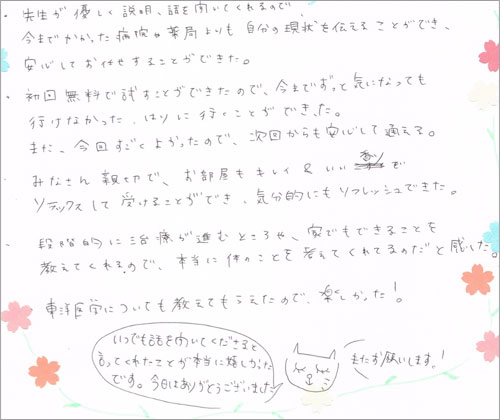 ・先生が優しく説明、話を聞いてくれるので、
今までかかった病院や薬局よりも自分の現状を伝えることができ、
安心してお任せすることができた。
・初回無料で試すことができたので、今までずっと気になっても
行けなかった、はりに行くことができた。
また、今回すごくよかったので、次回からも安心して通える。
・みなさん親切で、お部屋もキレイ&いい香りで
リラックスして受けることができ、気分的にもリフレッシュできた。
・段階的に治療が進むところや、家でもできることを
教えてくれるので、本当に体のことを考えてくれてるのだと感じた。
東洋医学についても教えてもらえたので、楽しかった!
いつでも話を聞いてくださると
言ってくれたことが本当に嬉しかった
です。今日はありがとうございました
またお願いします!